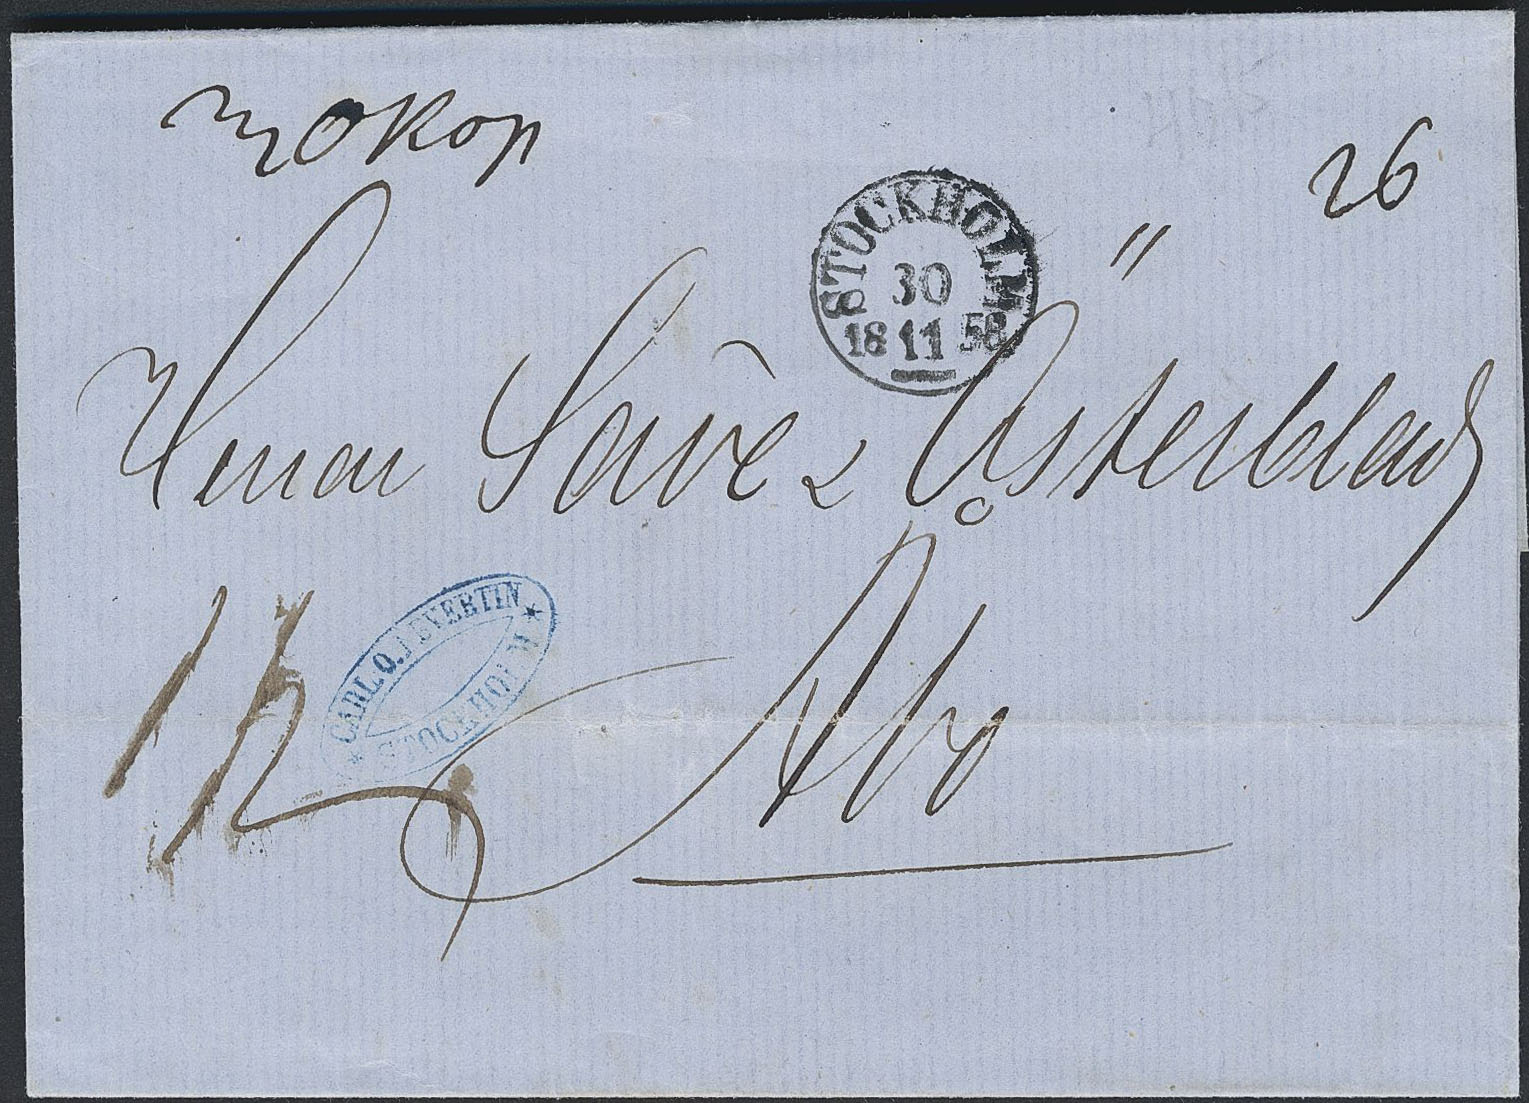 30 коп
26
STOCKHOLM
30
18 11 58
Herrar Save & Österbladh
CARL O. LEVERTIN
STOCKHOLM
Åbo